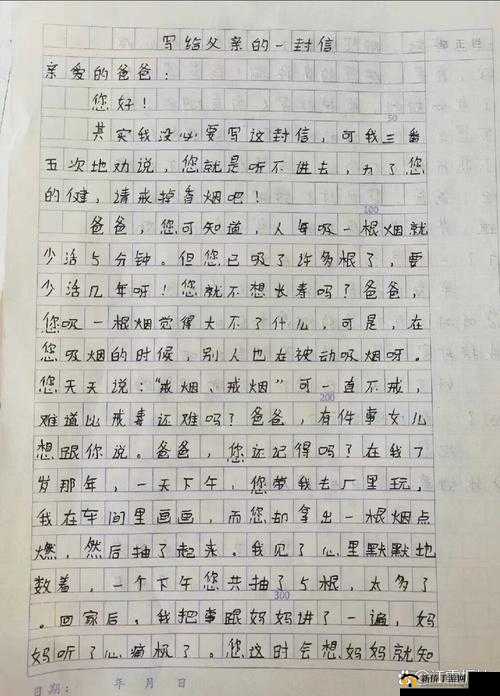 写给父亲的一封信
亲爱的爸爸：
您好！
50
其实我没必要写这封信，可我三番
五次地劝说，您就是听不进去，为了您
的健，请戒掉香烟吧！
100
爸爸，您可知道，人年吸一根烟就
少活5分钟。但您已吸了许多根了，要
少活几年呀！您就不想长寿吗？爸爸，
您吸一根烟觉得大不了什么，可是，在
您吸烟的时候，别人也在被动吸烟呀。
您天天说：“戒烟，戒烟”可一直不戒，
200
难道比戒毒还难吗？爸爸，有件事女儿
想跟你说。爸爸，您还记得吗？在我7
岁那年，一天下午，您带我去厂里玩，
我在车间里画画，而您却拿出一根烟点
燃，然后抽了起来。我见了心里默默地
数着，一个下午您共抽了5根，太多了
300
。回家后，我把事跟妈妈讲了一遍，妈
妈听了心痛极了。您这时会想妈妈就知
日期： 年 月 日
新侨手游网